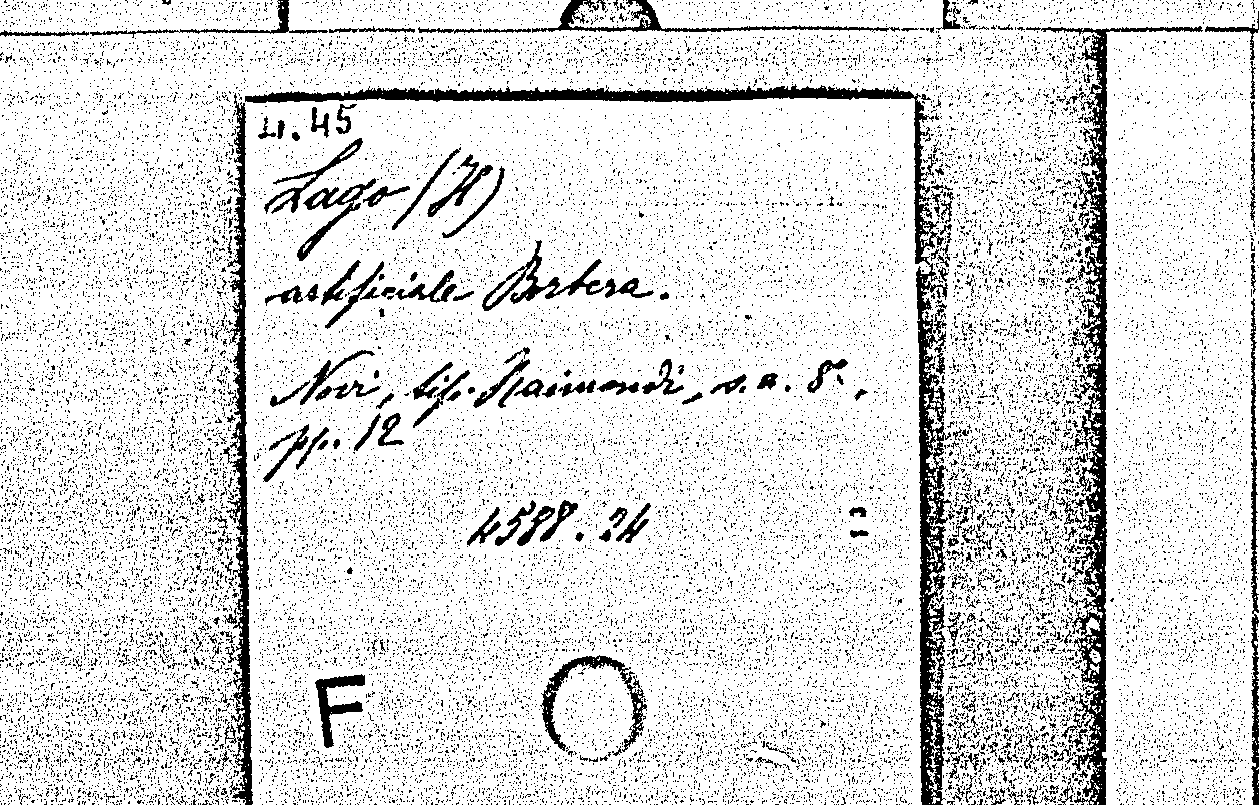 4.45
Lago (Il)
artificiale Borbera.
Novi, tip. Raimondi, s.a. 8°,
pp. 12
4588.24
F